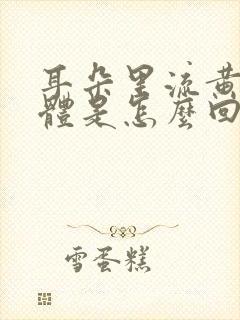 耳朵里流黄
體是怎麼回
雪蛋糕